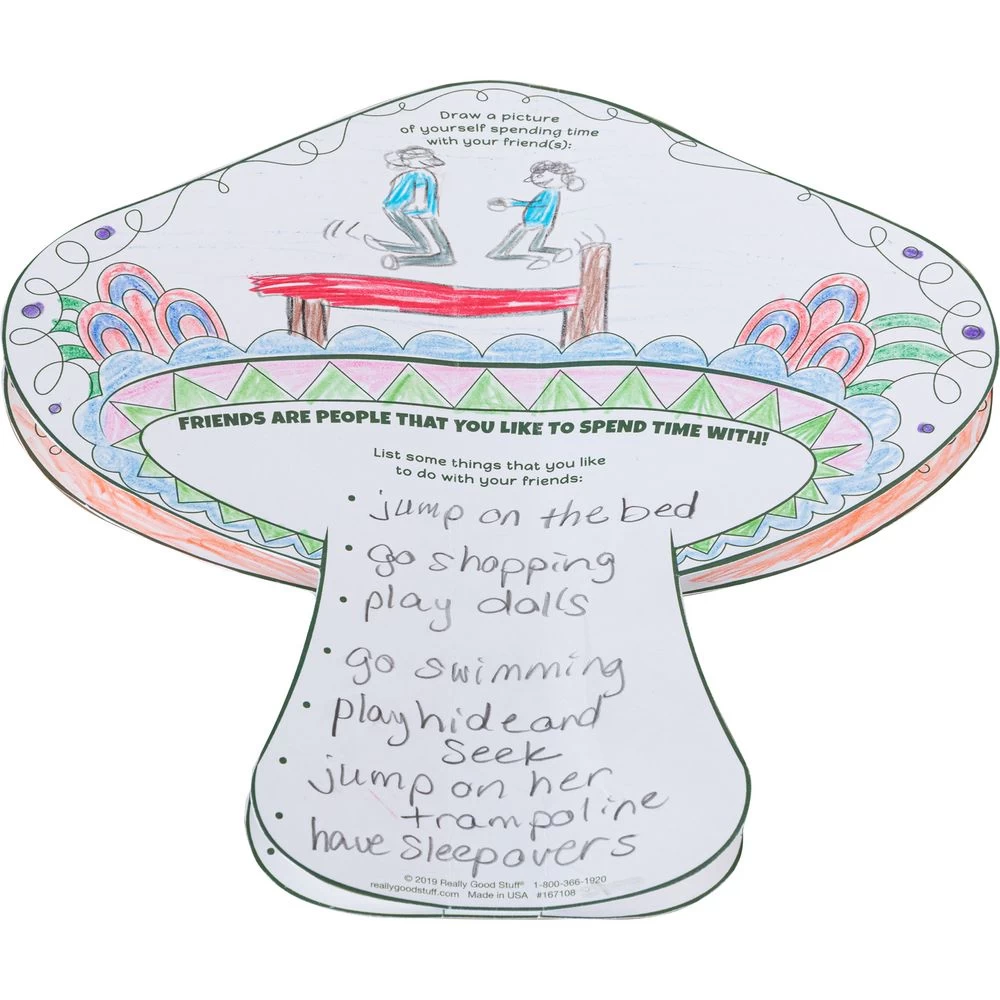 Draw a picture
of yourself spending time
with your friend(s):
FRIENDS ARE PEOPLE THAT YOU LIKE TO SPEND TIME WITH!
List some things that you like
to do with your friends:
• jump on the bed
• go shopping
• play dolls
• go swimming
• play hide and
seek
• jump on her
trampoline
• have sleepovers
© 2019 Really Good Stuff® 1-800-366-1920
reallygoodstuff.com Made in USA #167108